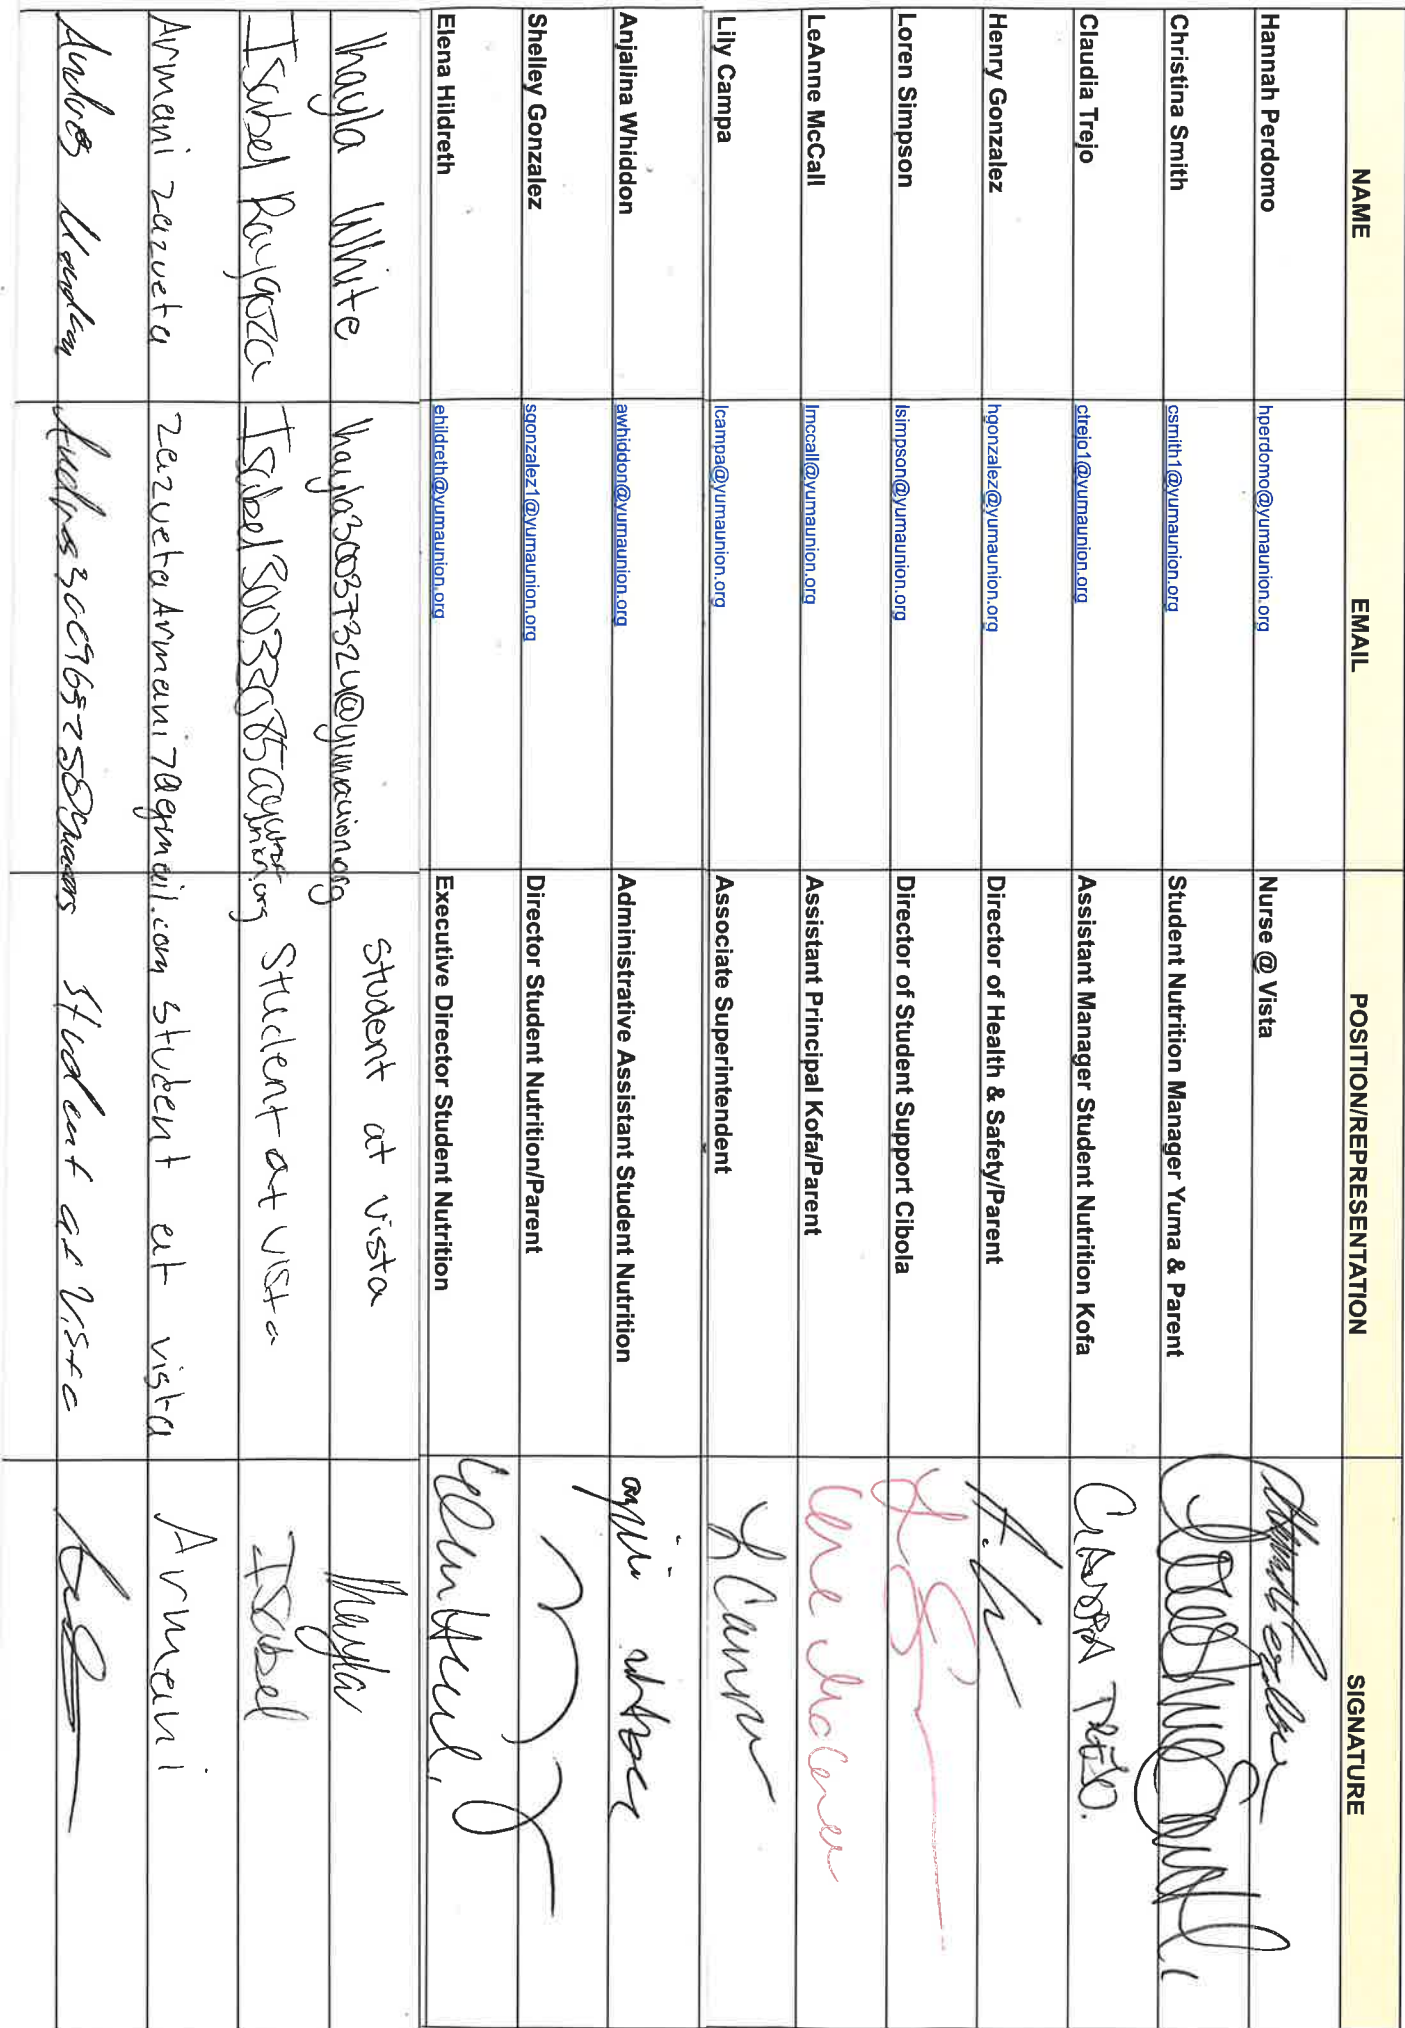 NAME EMAIL POSITION/REPRESENTATION SIGNATURE
Hannah Perdomo hperdomo@yumaunion.org Nurse @ Vista
Christina Smith csmith1@yumaunion.org Student Nutrition Manager Yuma & Parent
Claudia Trejo ctrejo1@yumaunion.org Assistant Manager Student Nutrition Kofa Claudia Trejo.
Henry Gonzalez hgonzalez@yumaunion.org Director of Health & Safety/Parent
Loren Simpson lsimpson@yumaunion.org Director of Student Support Cibola
LeAnne McCall lmccall@yumaunion.org Assistant Principal Kofa/Parent
Lily Campa lcampa@yumaunion.org Associate Superintendent L Campa
Anjalina Whiddon awhiddon@yumaunion.org Administrative Assistant Student Nutrition
Shelley Gonzalez sgonzalez1@yumaunion.org Director Student Nutrition/Parent
Elena Hildreth ehildreth@yumaunion.org Executive Director Student Nutrition
White student at vista
Isabel Raygoza Student at Vista Isabel
Armani zazueta zazuetaArmani7@gmail.com student at vista Armani
Andres Student at Vista